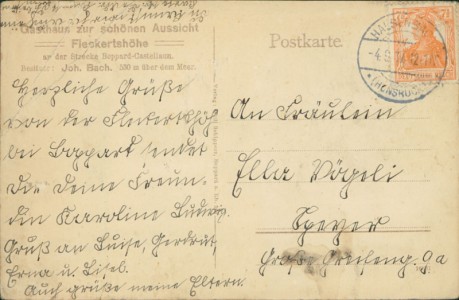 Gasthaus zur schönen Aussicht
Fleckertshöhe
an der Strecke Boppard-Castellaun.
Besitzer: Joh. Bach. 530 m über dem Meer.
Postkarte.
Herzliche Grüße
von der Fleckertshöh
bei Boppard sendet
Dir Deine Freun-
din Karoline Ludwig.
Gruß an Luise, Gerdrut,
Erna u. Lisel.
Auch grüße meine Eltern.
An Fräulein
Ella Vögeli
Speyer
Große Greifeng. 9a
(HUNSRÜCK)
7½